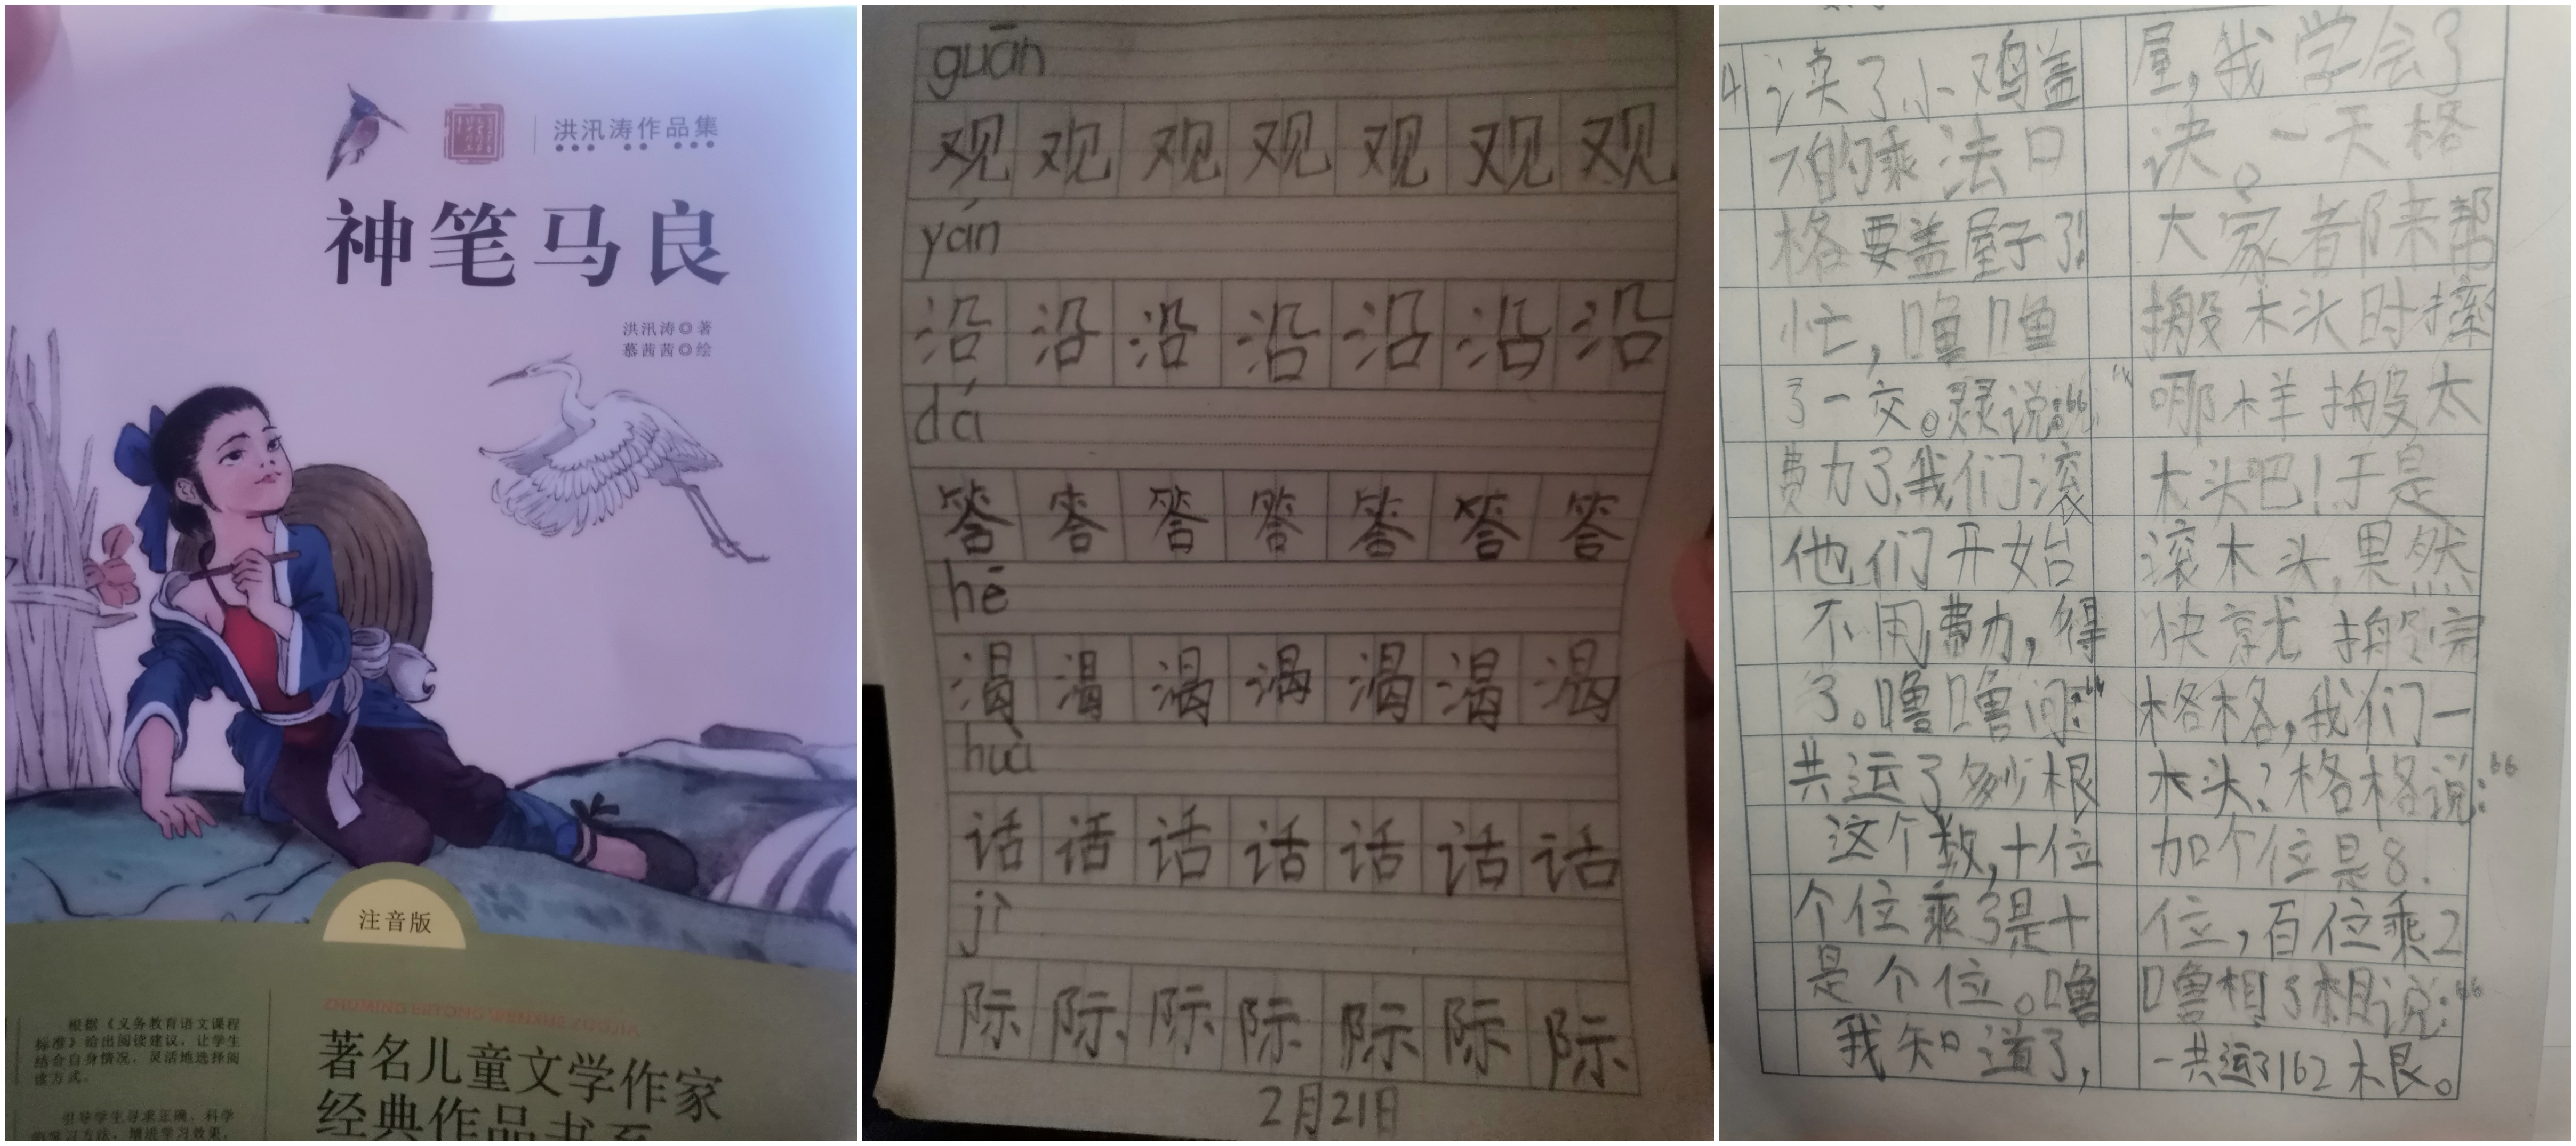 洪汛涛作品集
神笔马良
洪汛涛◎著
慕茜茜◎绘
注音版
根据《义务教育语文课程
标准》给出阅读建议，让学生
结合自身情况，灵活地选择阅
读方式。
引导学生寻求正确、科学
ZHUMING ERTONG WENXUE ZUOJIA
著名儿童文学作家
经典作品书系
guān
观 观 观 观 观 观 观
yán
沿 沿 沿 沿 沿 沿 沿
dá
答 答 答 答 答 答 答
hē
渴 渴 渴 渴 渴 渴 渴
huà
话 话 话 话 话 话 话
jì
际 际 际 际 际 际 际
2月21日
读了小鸡盖屋，我学会了
的乘法口诀。一天格
格要盖屋子了！大家都来帮
忙，噜噜搬木头时摔
了一交。灵灵说：“哪样搬太
费力了，我们滚木头吧！于是
他们开始滚木头，果然
不用费力，得快就搬完
了。噜噜问：“格格，我们一
共运了多少根木头？格格说：“
这个数，十位加个位是8.
个位乘了是十位，百位乘2
是个位。噜噜想了想说：“
我知道了，一共运了162木根。